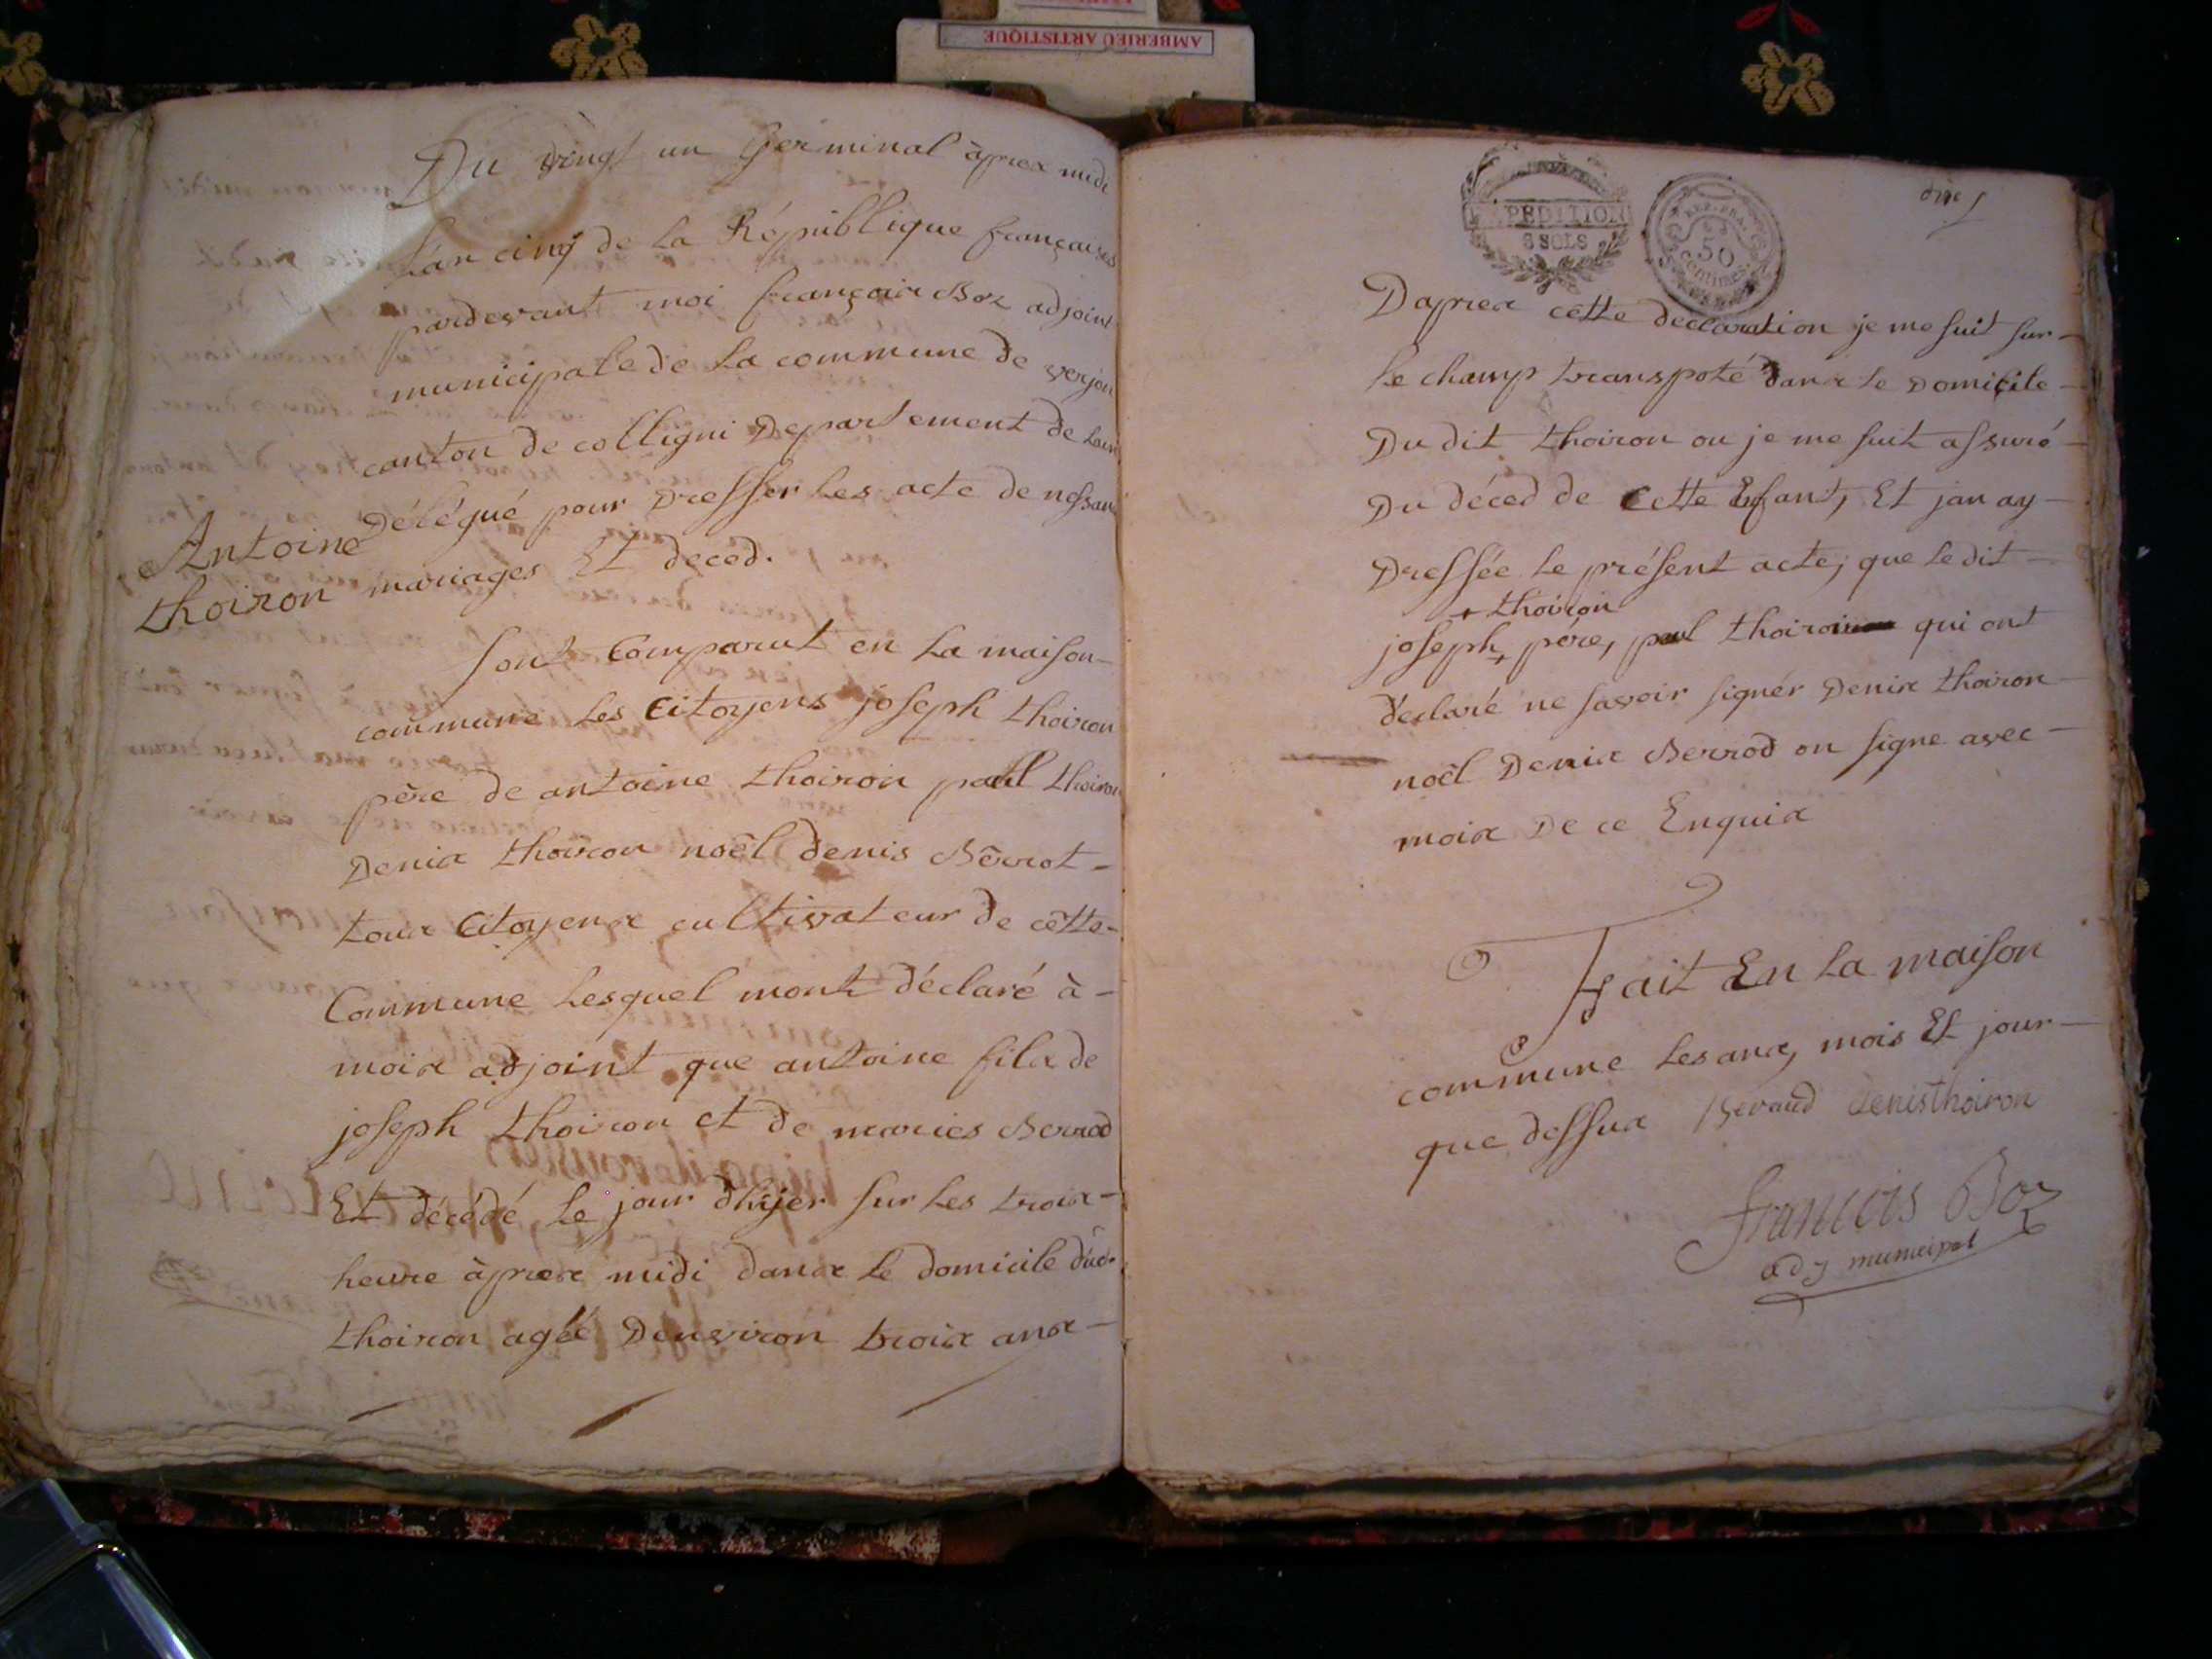 AMBERIEU ARTISTIQUE
Du vingt un Germinal àprex midi
L'an cinq de la République françaises
pardevant moi françoix Boz adjoint
municipale de la commune de verjon
canton de colligni Departement de Lain
Délégué pour Dresser les acte de nessan
mariages Et deced.
Antoine
thoiron
sont Comparut en la maison
commune les Citoyens joseph thoiron
père de antoine thoiron paul thoiron
Denix thoiron noël denis Bêrrot -
toux Citoyenx cultivateur de cêtte -
Commune lesquel mont déclaré à -
moix adjoint que antoine filx de
joseph thoiron et de maries Berrod
Et décédé le jour dhyer sur les troix -
heure àprex midi danx le domicile dud.
thoiron agéé Denviron troix anx -
EXPEDITION
8 SOLS
REP. FRA.
50
centimes
Daprex cette declaration je me suit sur -
le champ transpoté danx le Domicile -
Du dit thoiron ou je me suit assuré -
Du déced de Cette Enfant, Et jan ay -
Dressée le présent acte; que ledit -
+ thoiron
joseph + pére, paul thoiron qui ont
déclaré ne savoir signér Denix thoiron -
noël Denix Berrod on signe avec -
moix De ce Enquix
Fait En la maison
commune les anx, mois Et jour -
que dessux Beraud denisthoiron
francois Boz
adj municipal